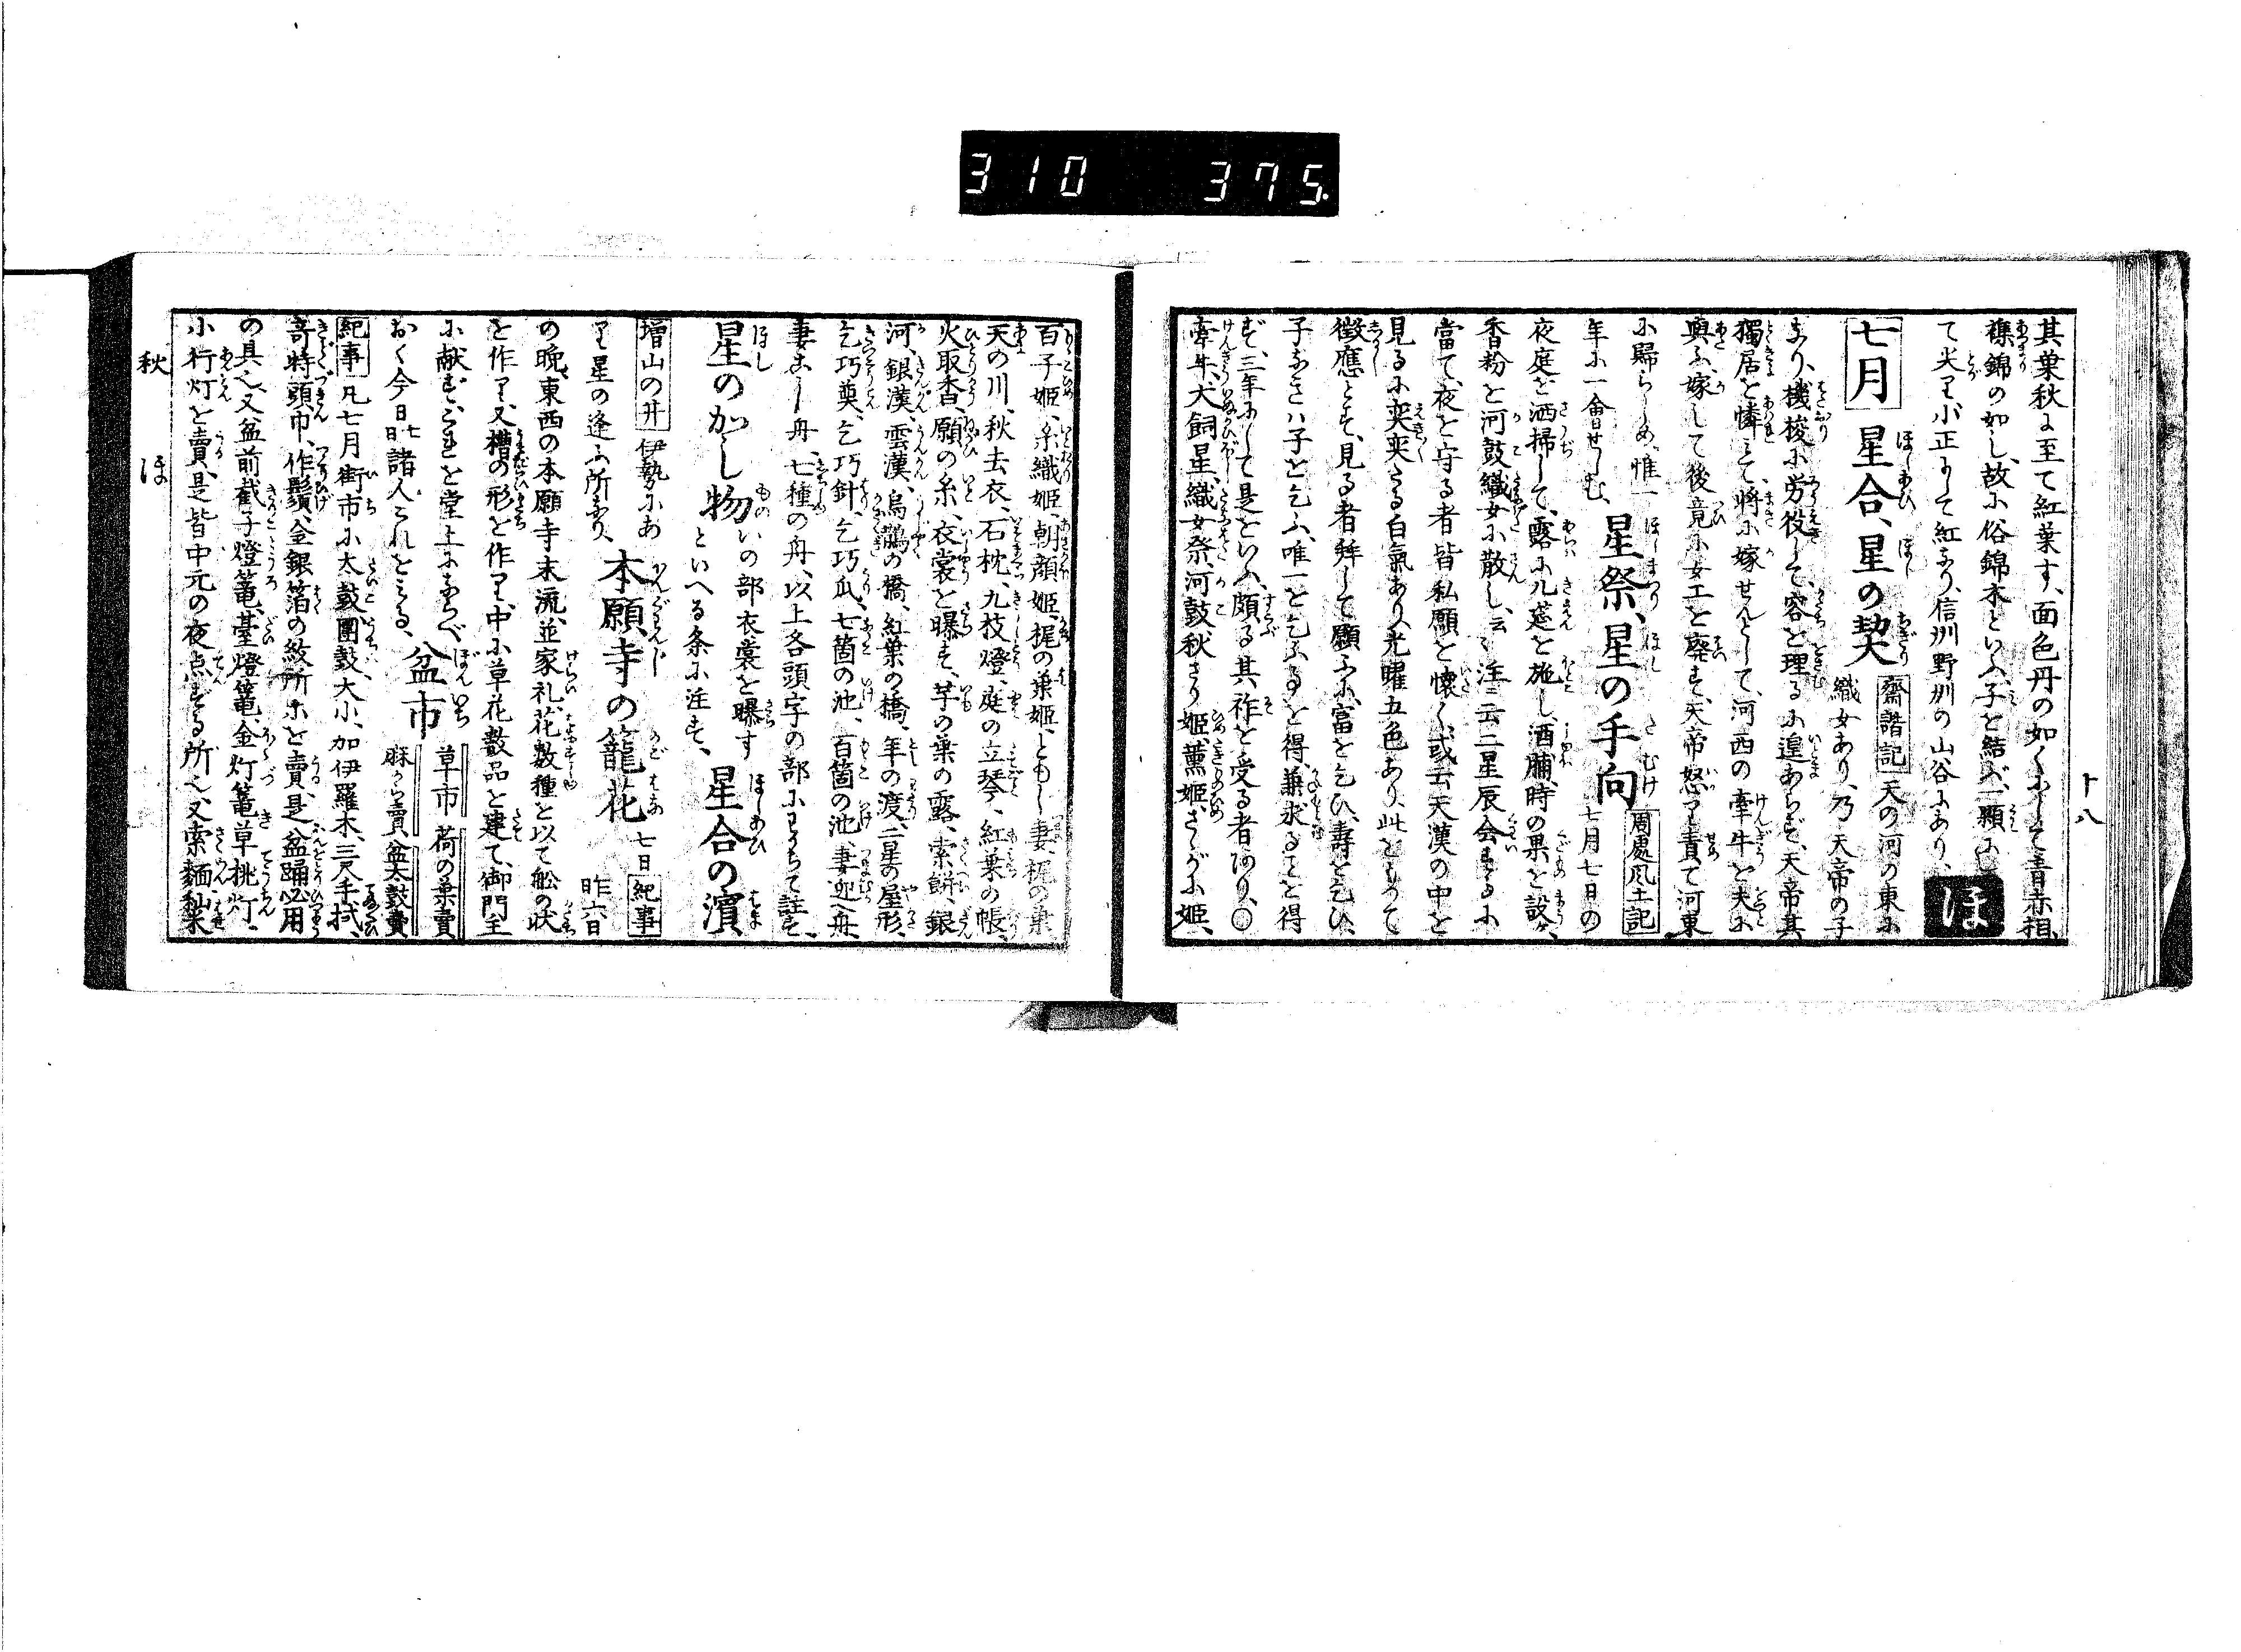 310 375.
十八
其葉秋に至て紅葉す、面色丹の如くにして青赤相
襍錦の如し、故に俗錦木といふ、子を結ぶ、一顆に
て尖り、小正にして紅なり、信州野州の山谷にあり、
ほ
七月 星合、星の契 齋諧記 天の河の東に
織女あり、乃天帝の子
なり、機梭に労役して、容を理るに遑あらず、天帝其
獨居を憐みて、將に嫁せんとして、河西の牽牛を夫に
與ふ、嫁して後竟に女工を廃す、天帝怒り責て河東
に歸らしめ、惟一
年に一會せしむ、 星祭、星の手向 周處風土記
七月七日の
夜庭を洒掃して、露に几筵を施し、酒脯、時の果を設け、
香粉を河鼓織女に散し、云々注ニ云二星辰会するに
當て、夜を守る者皆私願を懐く、或云天漢の中を
見るに奕奕たる白氣あり、光曜五色あり、此をもつて
徴應とす、見る者拜して願ふに、富を乞ひ、壽を乞ひ、
子なきハ子を乞ふ、唯一を乞ふることを得、兼求ることを得
ず、三年にして是をいふ、頗る其祚を受る者あり、〇
牽牛、犬飼星、織女祭、河鼓、秋さり姫、薫姫、さゝがに姫、
百子姫、糸織姫、朝顔姫、梶の葉姫、ともし妻、梶の葉、
天の川、秋去衣、石枕、九枝燈、庭の立琴、紅葉の帳、
火取香、願の糸、衣裳を曝す、芋の葉の露、索餅、銀
河、銀漢、雲漢、烏鵲の橋、紅葉の橋、年の渡、二星の屋形、
乞巧奠、乞巧針、乞巧瓜、七箇の池、百箇の池、妻迎舟、
妻こし舟、七種の舟、以上各頭字の部にわかちて註す、
星のかし物 いの部衣裳を曝す
といへる条に注す、 星合の濱
増山の井 伊勢にあ
り星の逢ふ所なり、 本願寺の籠花 七日 紀事
昨六日
の晩、東西の本願寺末流、並家礼、花数種を以て船の状
を作り、又槽の形を作り、中に草花数品を建て、御門主
に献ず、これを堂上にならべ
おく今日七日諸人これをみる、 盆市 草市 荷の葉賣
麻から賣 盆太鼓賣
紀事 凡七月街市に太鼓、團鼓、大小、加伊羅木、三尺手拭、
奇特頭巾、作鬚、金銀箔の紋所ホを賣、是盆踊必用
の具也、又盆前截子燈篭、䑓燈篭、金灯篭草、挑灯、
小行灯を賣、是皆中元の夜点ずる所也、又索麺、秈米
秋 ほ